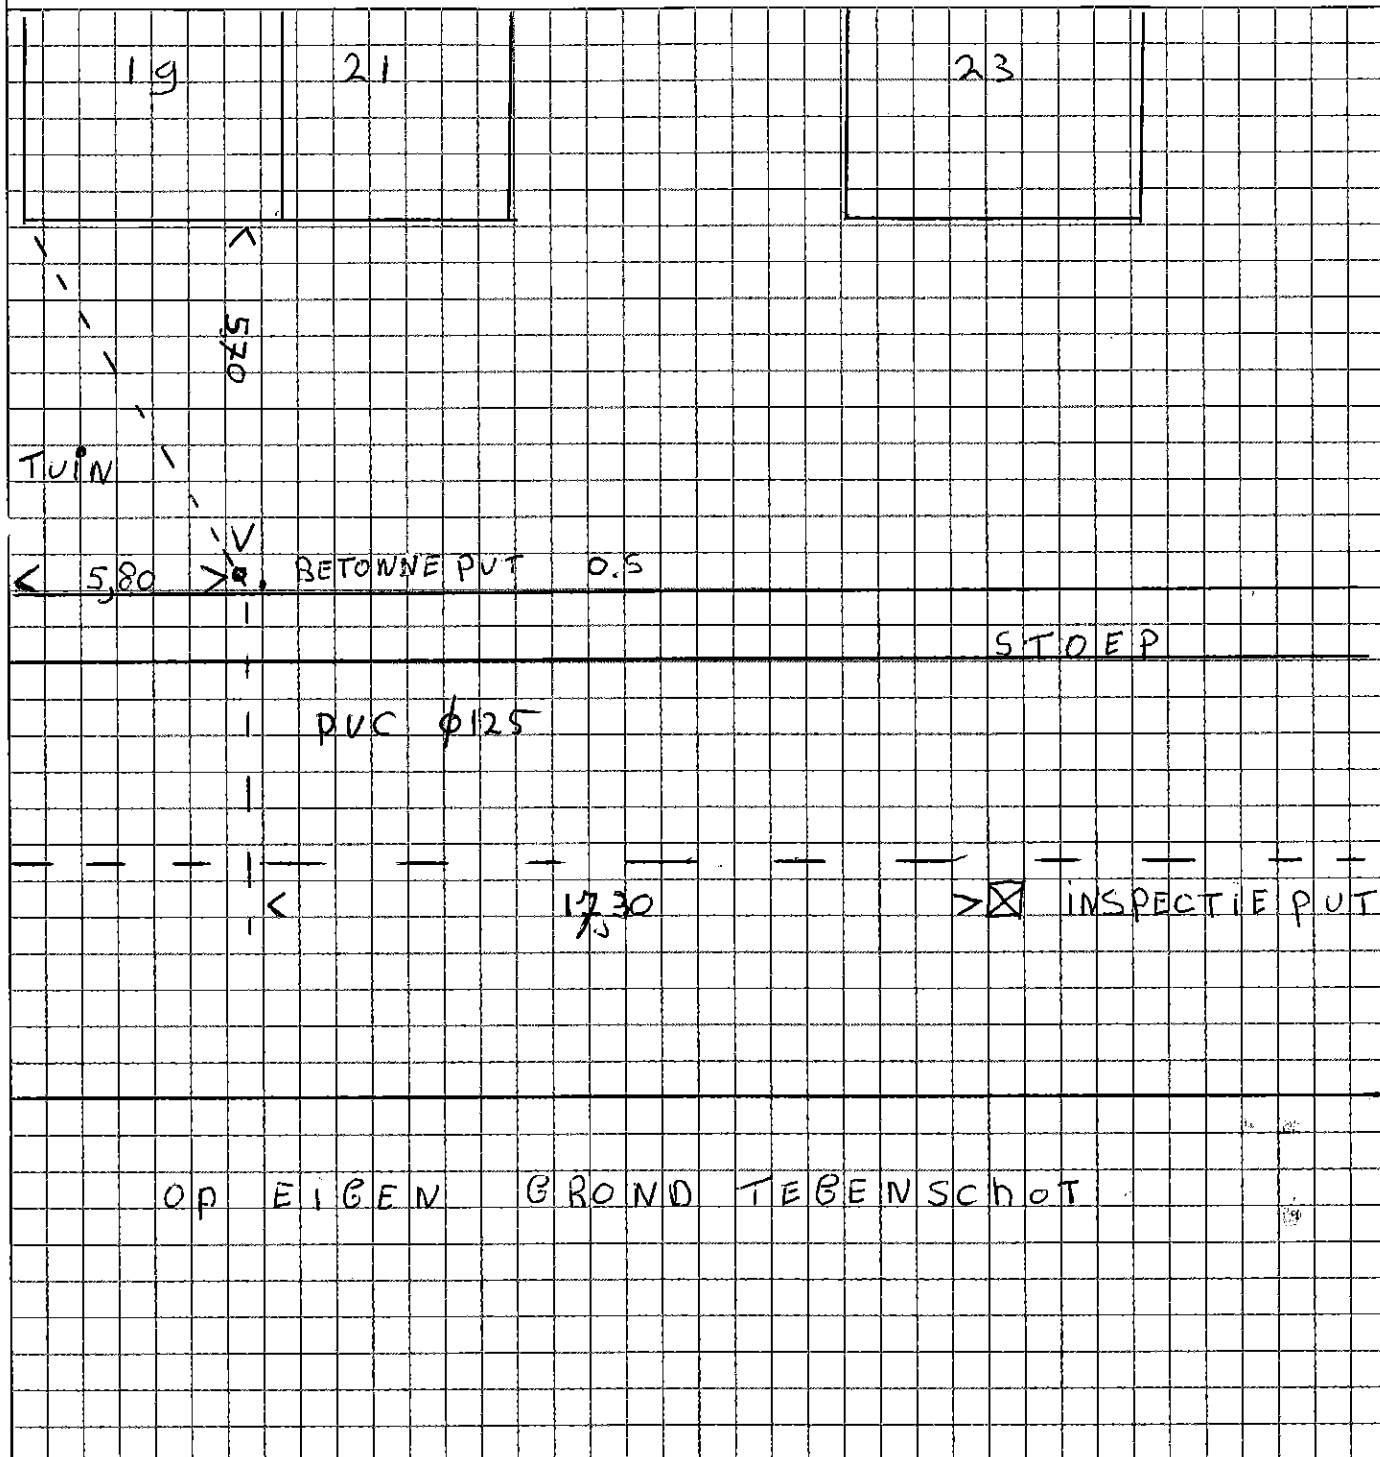 19 21 23
5,70
TUIN
< 5,80 > BETONNE PUT 0.5
STOEP
PVC ϕ125
< 17,30 > INSPECTIE PUT
OP EIGEN GROND TEGENSCHOT